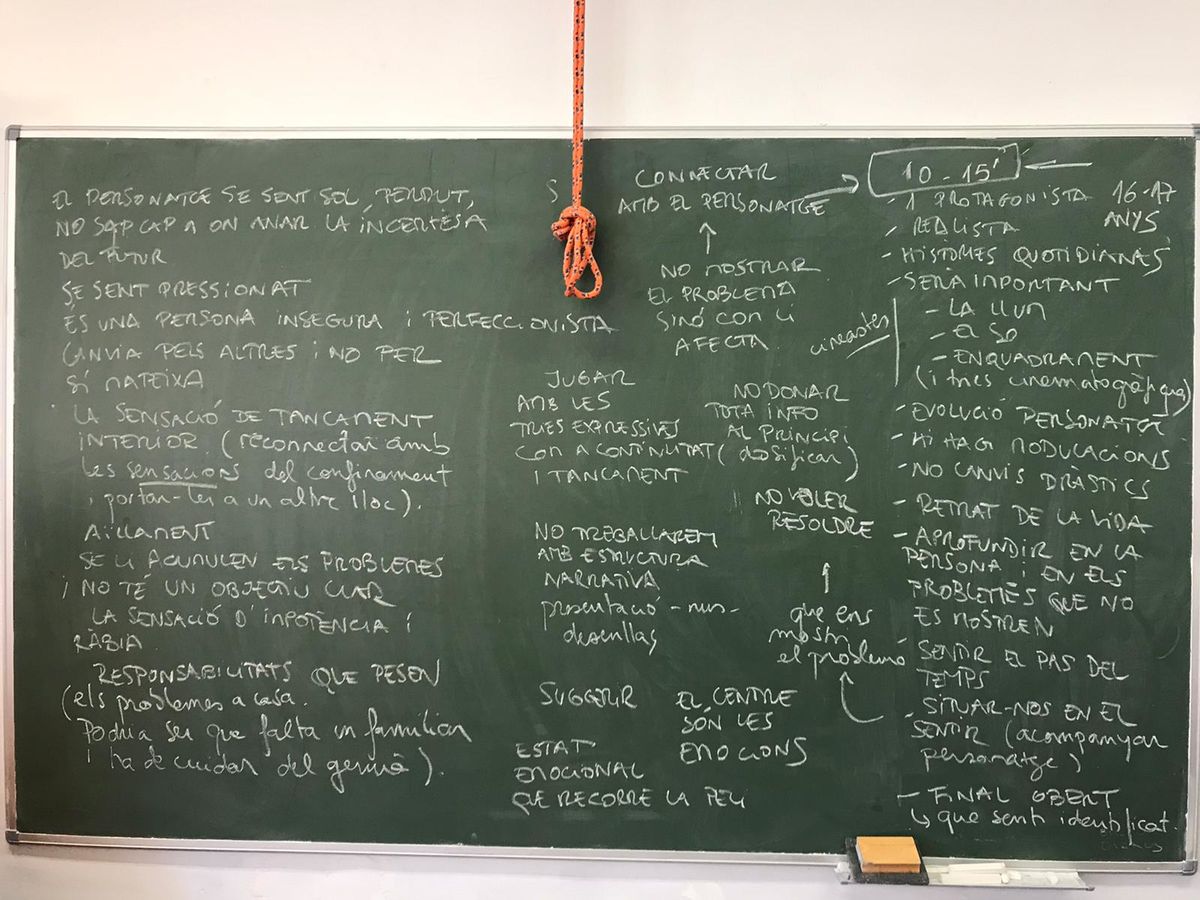 EL PERSONATGE SE SENT SOL, PERDUT,
NO SAP CAP A ON ANAR LA INCERTESA
DEL FUTUR
SE SENT PRESSIONAT
ÉS UNA PERSONA INSEGURA i PERFECCIONISTA
CANVIA PELS ALTRES i NO PER
SÍ MATEIXA
LA SENSACIÓ DE TANCAMENT
INTERIOR. (reconnectar amb
les sensacions del confinament
i portar-les a un altre lloc).
AÏLLAMENT
SE LI ACUMULEN ELS PROBLEMES
i NO TÉ UN OBJECTIU CLAR
LA SENSACIÓ D'IMPOTÈNCIA i
RÀBIA.
RESPONSABILITATS QUE PESEN
(els problemes a casa.
Podria ser que falta un familiar
i ha de cuidar del germà).
S
CONNECTAR
AMB EL PERSONATGE
NO MOSTRAR
EL PROBLEMA
SINÓ COM LI
AFECTA.
JUGAR
AMB LES
TRIES EXPRESSIVES
COM A CONTINUÏTAT
I TANCAMENT
NO DONAR
TOTA INFO
AL PRINCIPI
(dosificar)
NO VOLER
RESOLDRE
que ens
mostri
el problema
NO TREBALLAREM
AMB ESTRUCTURA
NARRATIVA
presentació - nus -
desenllaç
SUGGERIR
EL CENTRE
SÓN LES
EMOCIONS
ESTAT
EMOCIONAL
QUE RECORRE LA PEL·LI
10 - 15'
- 1 PROTAGONISTA 16-17
ANYS
- REALISTA
- HISTÒRIES QUOTIDIANES
- SERÀ IMPORTANT
cineastes
- LA LLUM
- EL SO
- ENQUADRAMENT
(i tries cinematogràfiques)
- EVOLUCIÓ PERSONATGE
- HI HAGI MODULACIONS
- NO CANVIS DRÀSTICS
- RETRAT DE LA VIDA
- APROFUNDIR EN LA
PERSONA i EN ELS
PROBLEMES QUE NO
ES MOSTREN
- SENTIR EL PAS DEL
TEMPS
- SITUAR-NOS EN EL
SENTIR (acompanyar
personatge)
- FINAL OBERT
↳ que senti identificat.